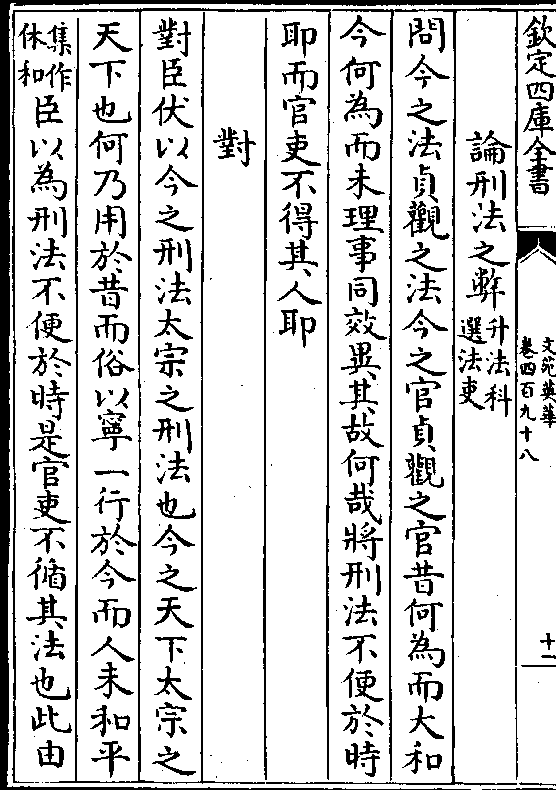 欽定四庫全書
文苑英華
卷四百九十八
十一
論刑法之弊升法科
選法吏
問今之法貞觀之法今之官貞觀之官昔何為而大和
今何為而未理事同效異其故何哉將刑法不便於時
耶而官吏不得其人耶
對
對臣伏以今之刑法太宗之刑法也今之天下太宗之
天下也何乃用於昔而俗以寧一行於今而人未和平
集作
休和臣以為刑法不便於時是官吏不循其法也此由